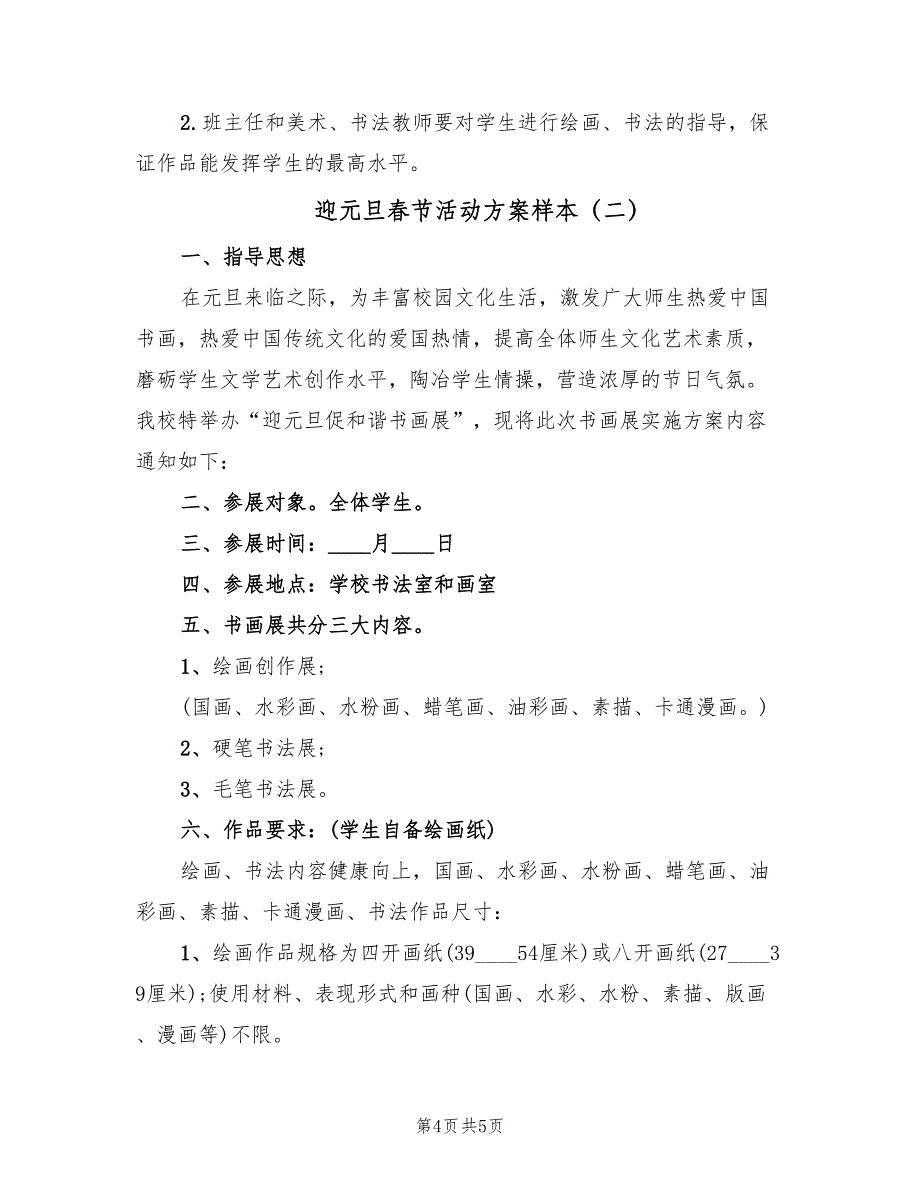 2.班主任和美术、书法教师要对学生进行绘画、书法的指导，保
证作品能发挥学生的最高水平。
迎元旦春节活动方案样本（二）
一、指导思想
在元旦来临之际，为丰富校园文化生活，激发广大师生热爱中国
书画，热爱中国传统文化的爱国热情，提高全体师生文化艺术素质，
磨砺学生文学艺术创作水平，陶冶学生情操，营造浓厚的节日气氛。
我校特举办“迎元旦促和谐书画展”，现将此次书画展实施方案内容
通知如下：
二、参展对象。全体学生。
三、参展时间：____月____日
四、参展地点：学校书法室和画室
五、书画展共分三大内容。
1、绘画创作展;
(国画、水彩画、水粉画、蜡笔画、油彩画、素描、卡通漫画。)
2、硬笔书法展;
3、毛笔书法展。
六、作品要求：(学生自备绘画纸)
绘画、书法内容健康向上，国画、水彩画、水粉画、蜡笔画、油
彩画、素描、卡通漫画、书法作品尺寸：
1、绘画作品规格为四开画纸(39____54厘米)或八开画纸(27____3
9厘米);使用材料、表现形式和画种(国画、水彩、水粉、素描、版画
、漫画等)不限。
第4页共5页